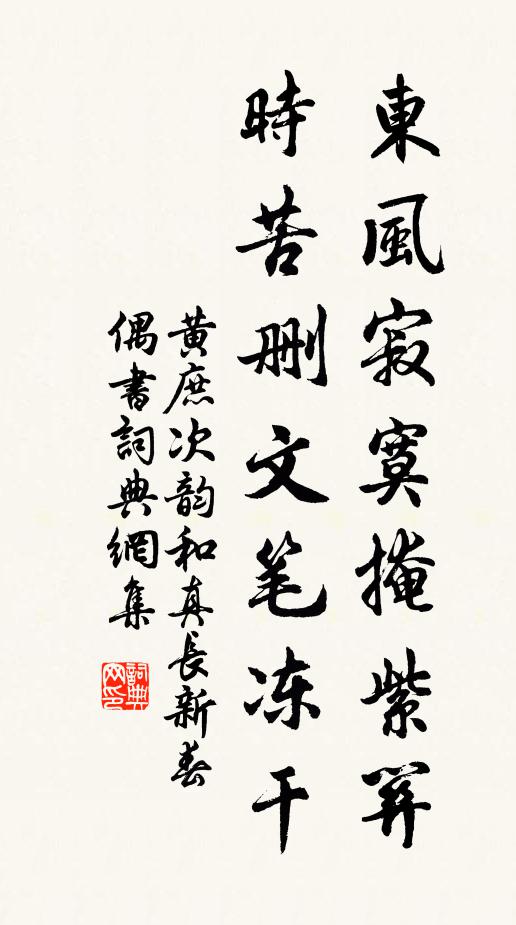 東風寂寞掩紫
時苦删文笔冻干
黄庶次韵和真長新春
偶書詞典網集
詞典
网印